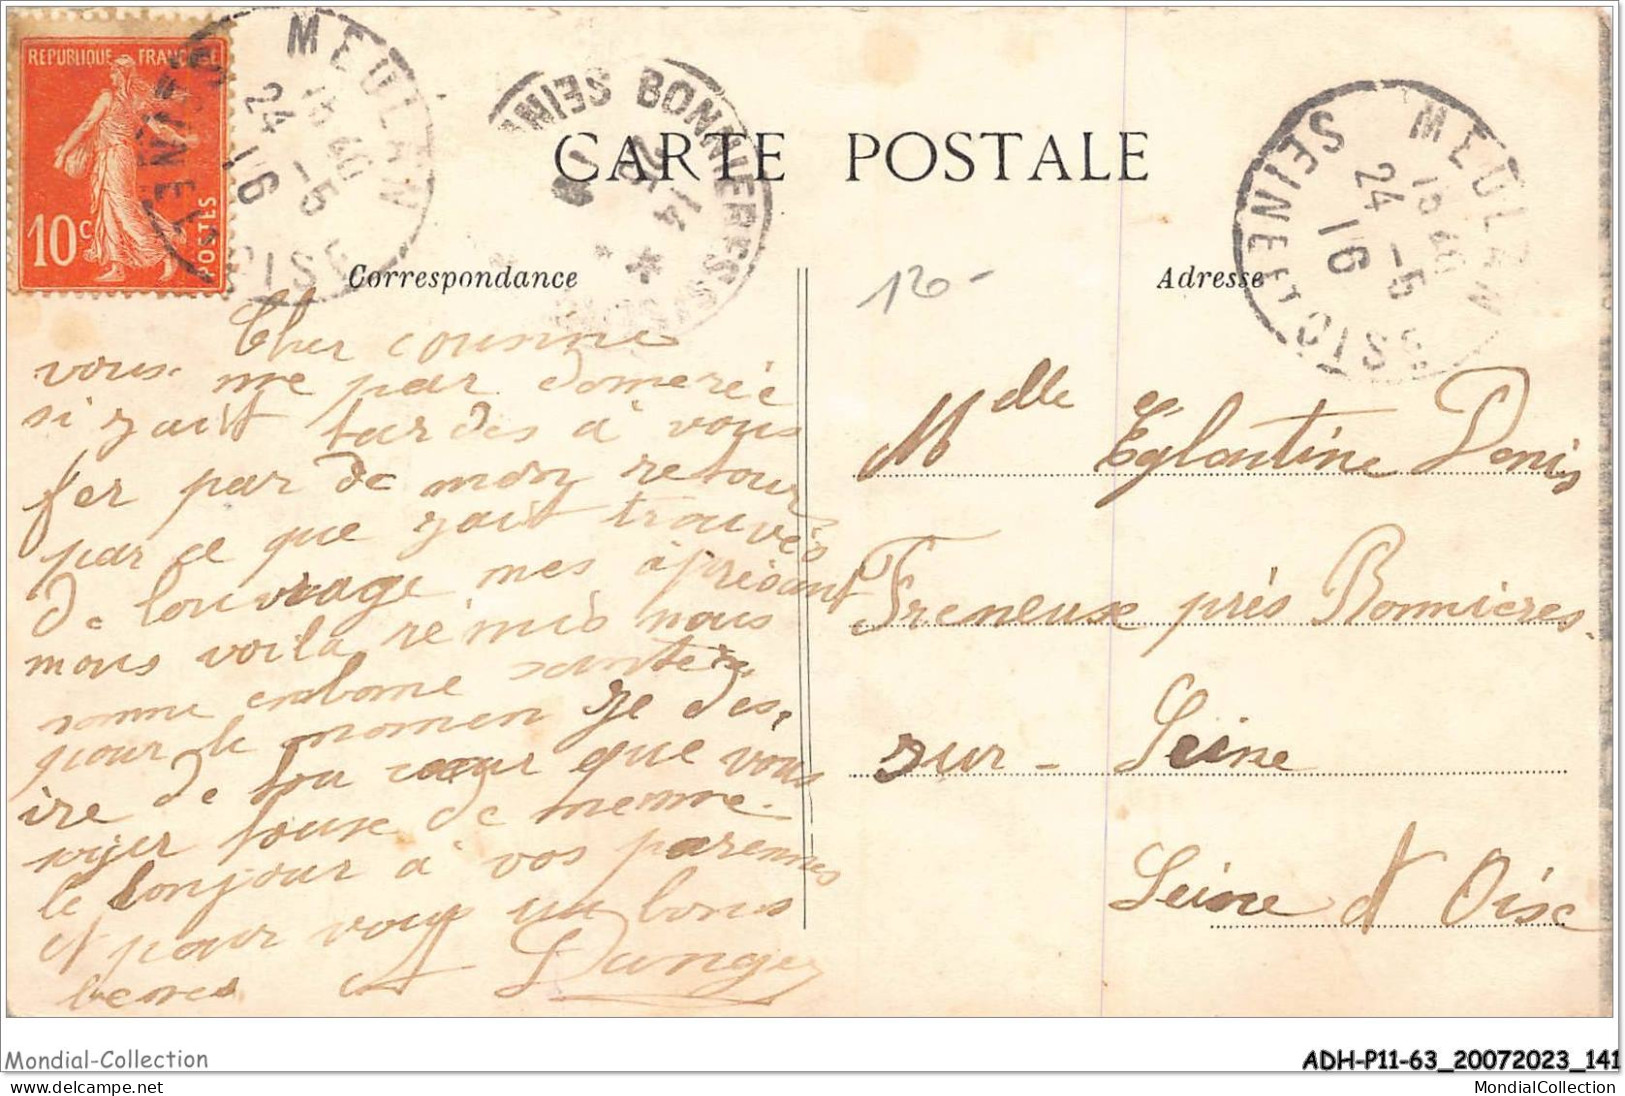 REPUBLIQUE FRANCAISE
10c
POSTES
MEULAN
15 40
24 -5
16
SEINE ET OISE
BONNIERES S
SEINE
CARTE POSTALE
Correspondance
Adresse
MEULAN
15 40
24 -5
16
SEINE ET OISE
120-
Cher cousine
vous. me par domerée
si zait tardés à vous
fer par de mon retour
par ce que zait trouvés
de louvrage mes aprésant
mous voila rémis nous
somme enbone santés
pour le momen je des,
ire de tou cœur que vous
soyer toux de memme.
le bonjour à vos parennes
et pour vous un bons
beses A Dangez
Melle Eglantine Denis
Freneuse près Bonnieres.
sur - Seine
Seine et Oise
Mondial-Collection
ADH-P11-63_20072023_141
MondialCollection